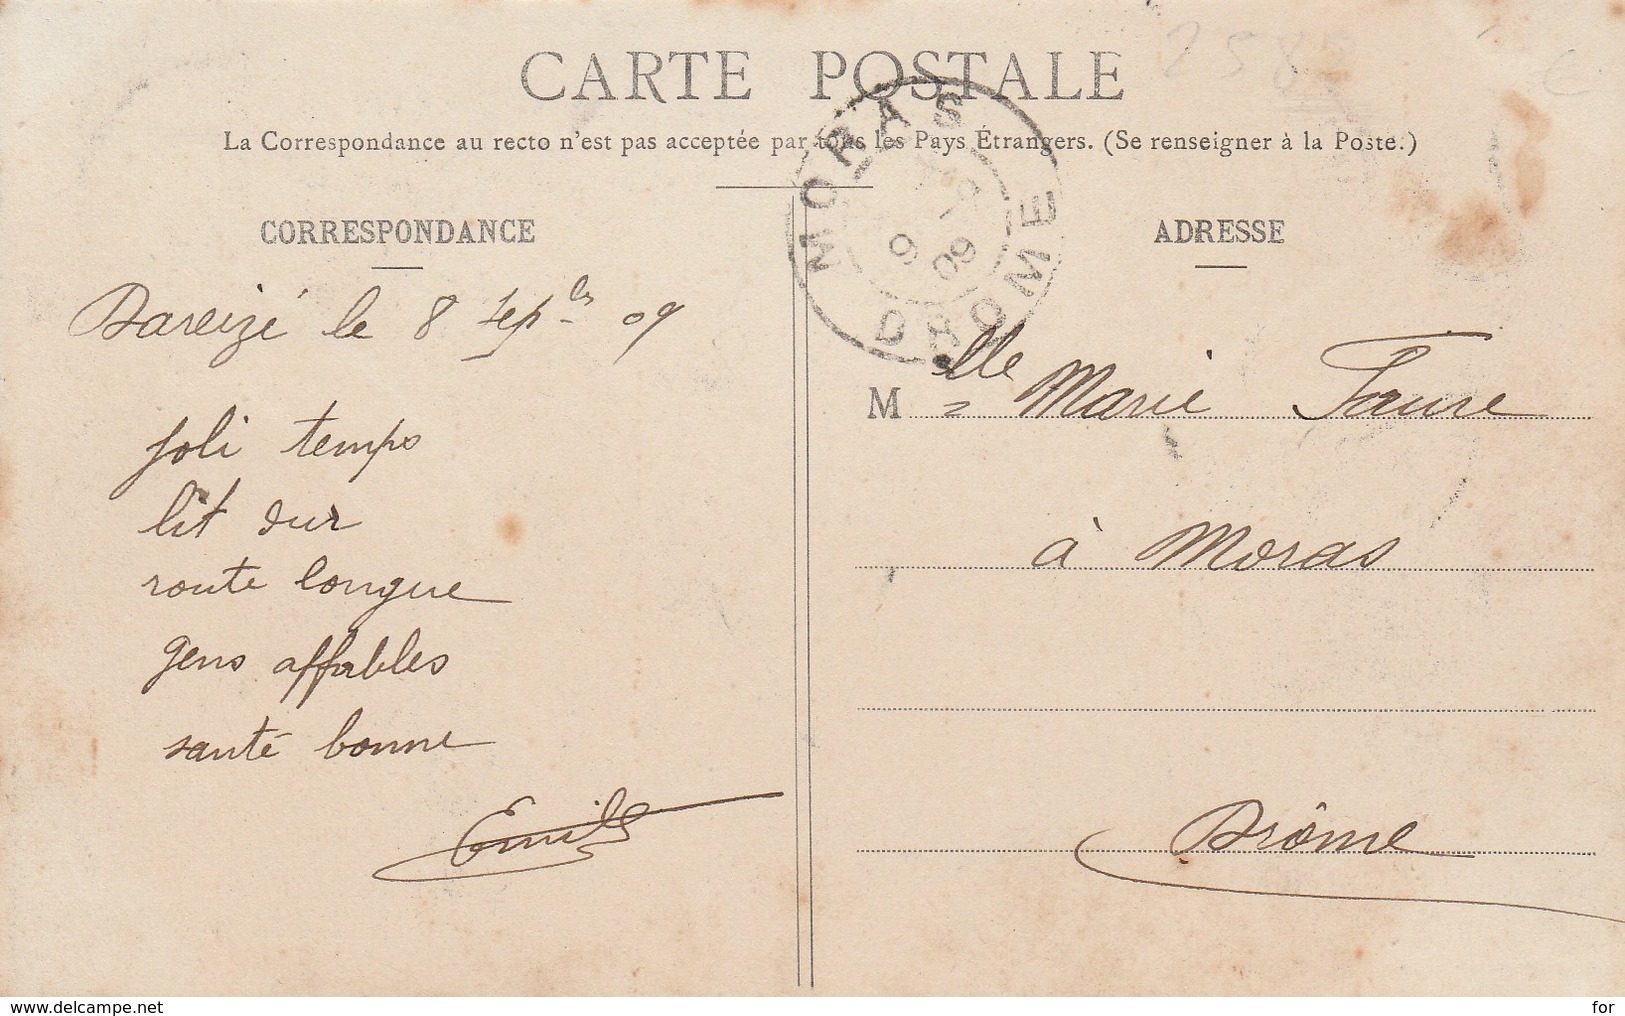 CARTE POSTALE
La Correspondance au recto n'est pas acceptée par tous les Pays Étrangers. (Se renseigner à la Poste.)
CORRESPONDANCE
Dareizé le 8 Sepbre 09
joli temps
lit dur
route longue
gens affables
santé bonne
Emile
MORAS
DROME
9
09
ADRESSE
Mlle Marie Faure
à Moras
Drôme
www.delcampe.net
for